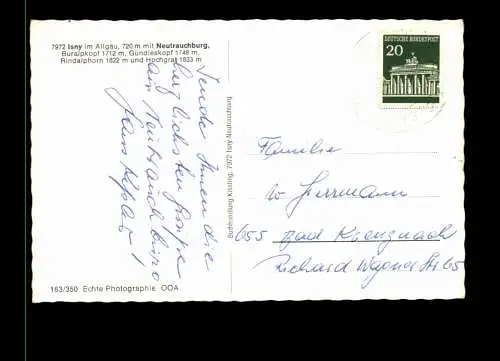 7972 Isny im Allgäu, 720 m mit Neutrauchburg,
Buralpkopf 1712 m, Gündleskopf 1748 m,
Rindalphorn 1822 m und Hochgrat 1833 m
Sende Ihnen die
herzlichsten Grüße
Buchhandlung Kastig, 7972 Isny-Neutrauchburg
DEUTSCHE BUNDESPOST
20
Familie
W Herrmann
655 Bad Kreuznach
Richard Wagner Str 65
163/350 Echte Photographie OOA